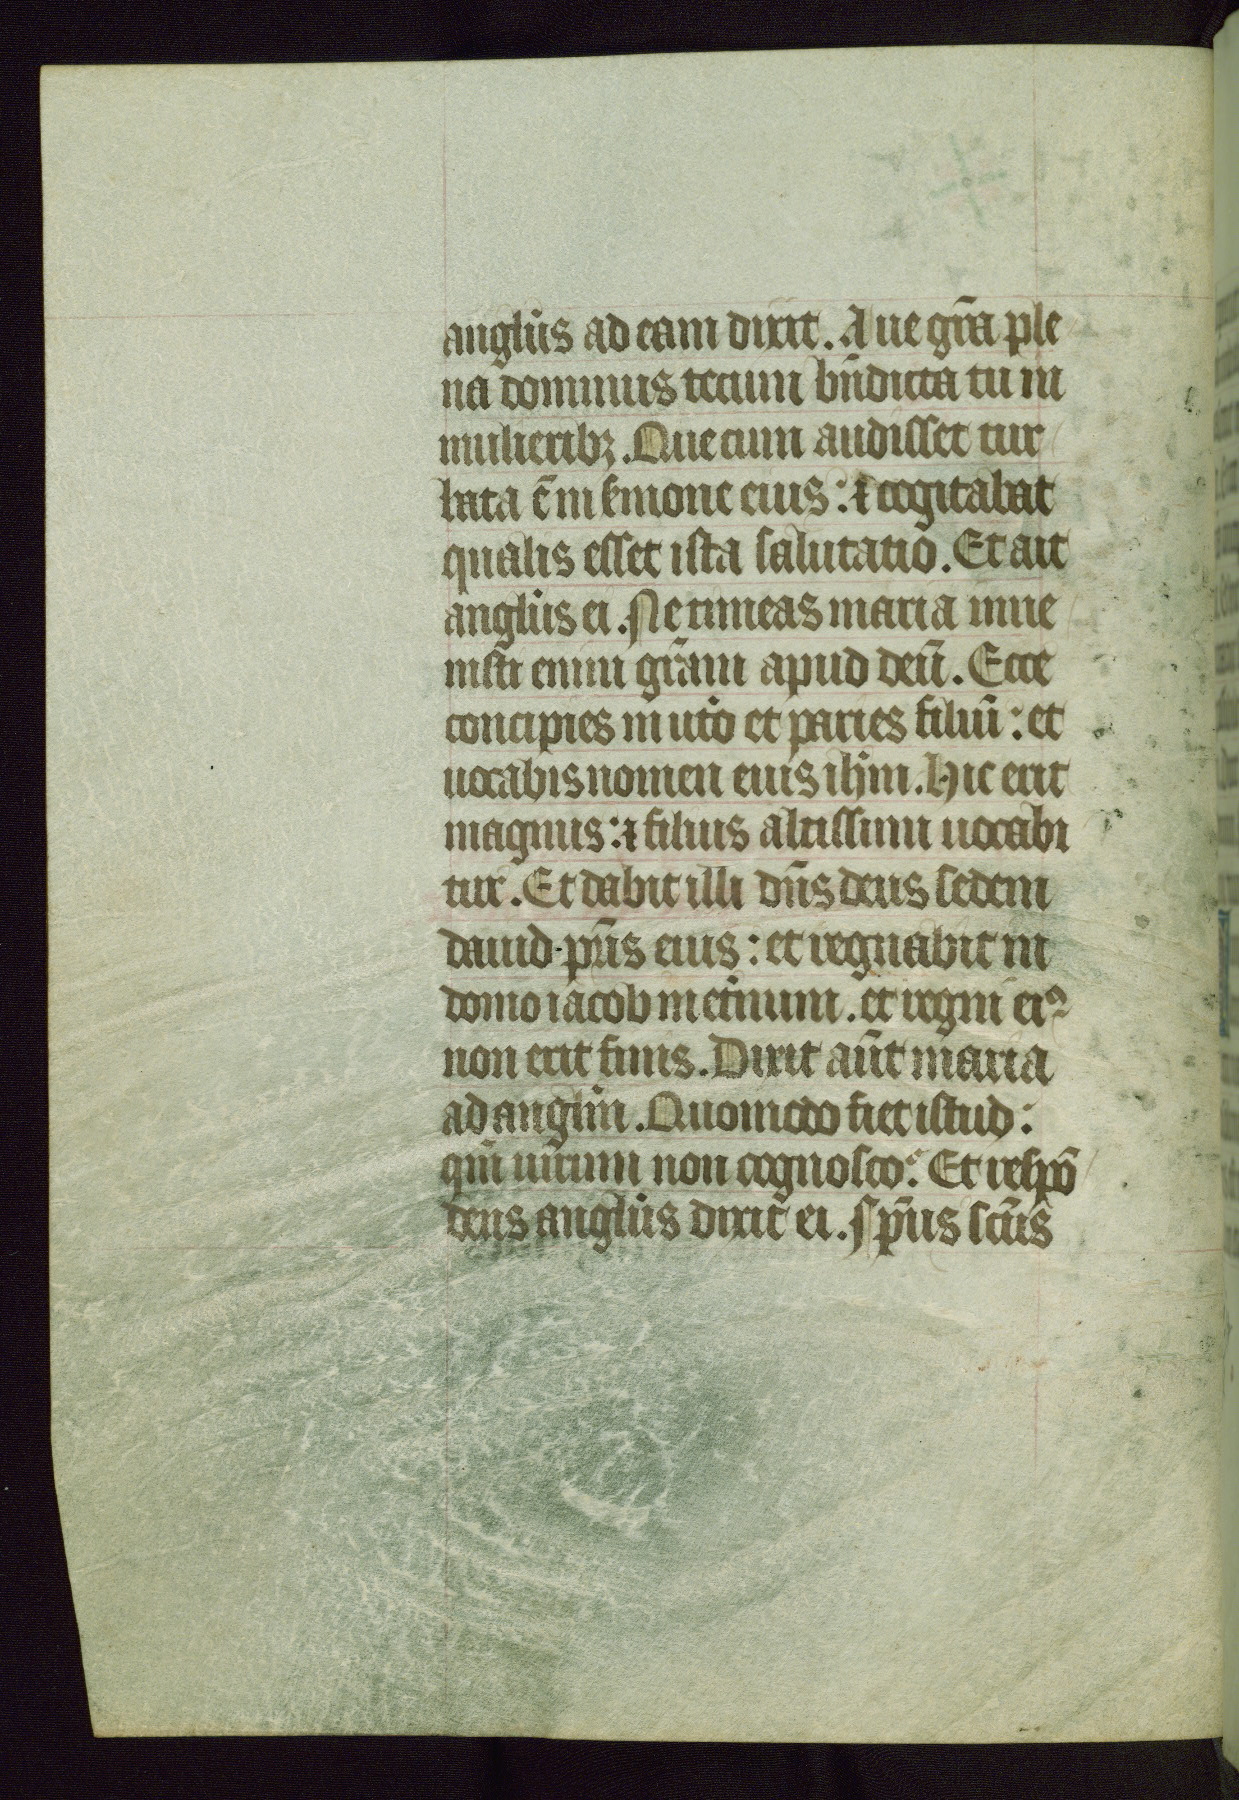 anglus ad eam dixit. Aue gr̄a ple
na dominus tecum bn̄dicta tu in
mulieribꝫ. Que cum audisset tur
bata ē in s̄mone eius : ⁊ cogitabat
qualis esset ista salutatio. Et ait
angl̄us ei. Ne timeas maria inue
nisti enim gr̄am apud deū. Ecce
concipies in ut̄o et paries filiū : et
uocabis nomen eius ih̄m. Hic erit
magnus : ⁊ filius altissimi uocabi
tur. Et dabit illi dn̄s deus sedem
dauid pr̄is eius : et regnabit in
domo iacob in et̄num. et regni eiꝰ
non erit finis. Dixit aūt maria
ad angl̄m. Quomodo fiet istud :
qm̄ uirum non cognosco. Et respō
dens angl̄us dixit ei. Sp̄us sc̄us